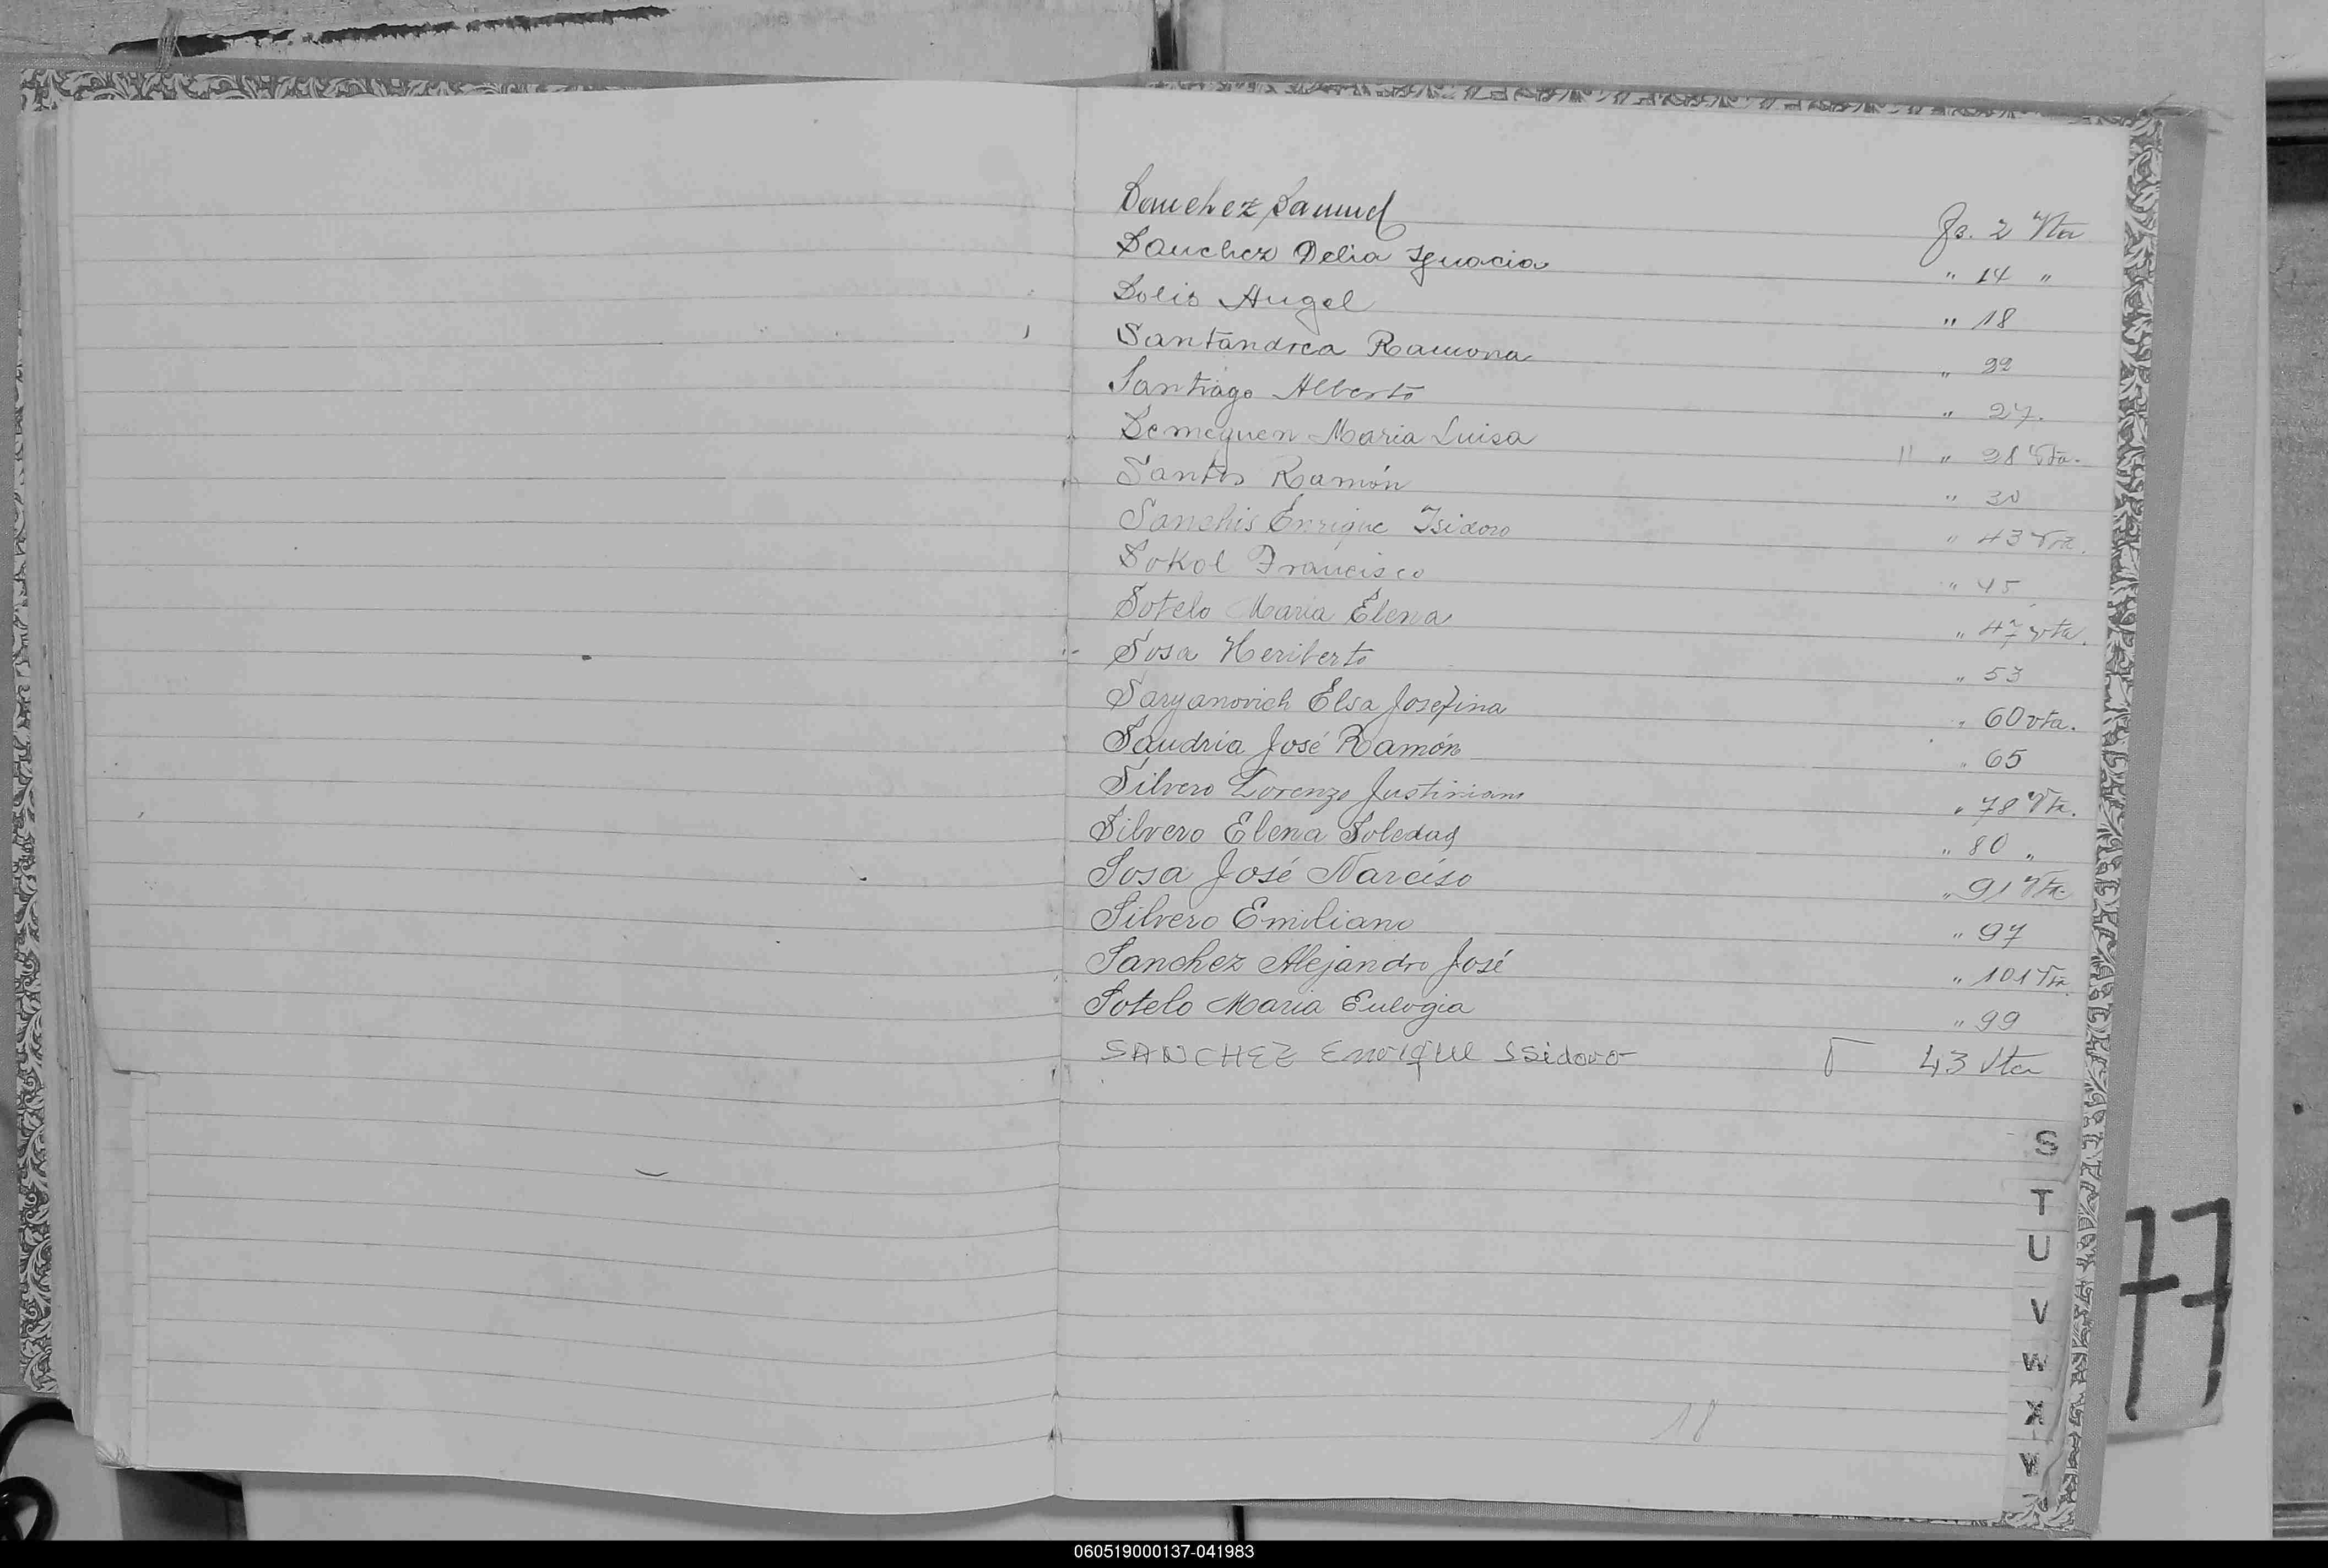 Sanchez Samuel Fs. 2 Vta
Sanchez Delia Ignacia " 14 "
Solis Angel " 18
Santandrea Ramona " 22
Santiago Alberto " 27.
Semeguen Maria Luisa " " 28 Vta.
Santos Ramón " 30
Sanchis Enrique Isidoro " 43 Vta.
Sokol Francisco " 45
Sotelo Maria Elena " 47 vta.
Sosa Heriberto " 53
Saryanovich Elsa Josefina " 60 vta.
Saudria José Ramón " 65
Silvero Lorenzo Justiniano " 78 Vta.
Silvero Elena Soledad " 80 "
Sosa José Narciso " 91 Vta
Silvero Emiliano " 97
Sanchez Alejandro José " 101 Vta
Sotelo Maria Eulogia " 99
SANCHEZ Enrique Isidoro 43 Vta
S
T
U
V
W
X
Y
77
18
060519000137-041983